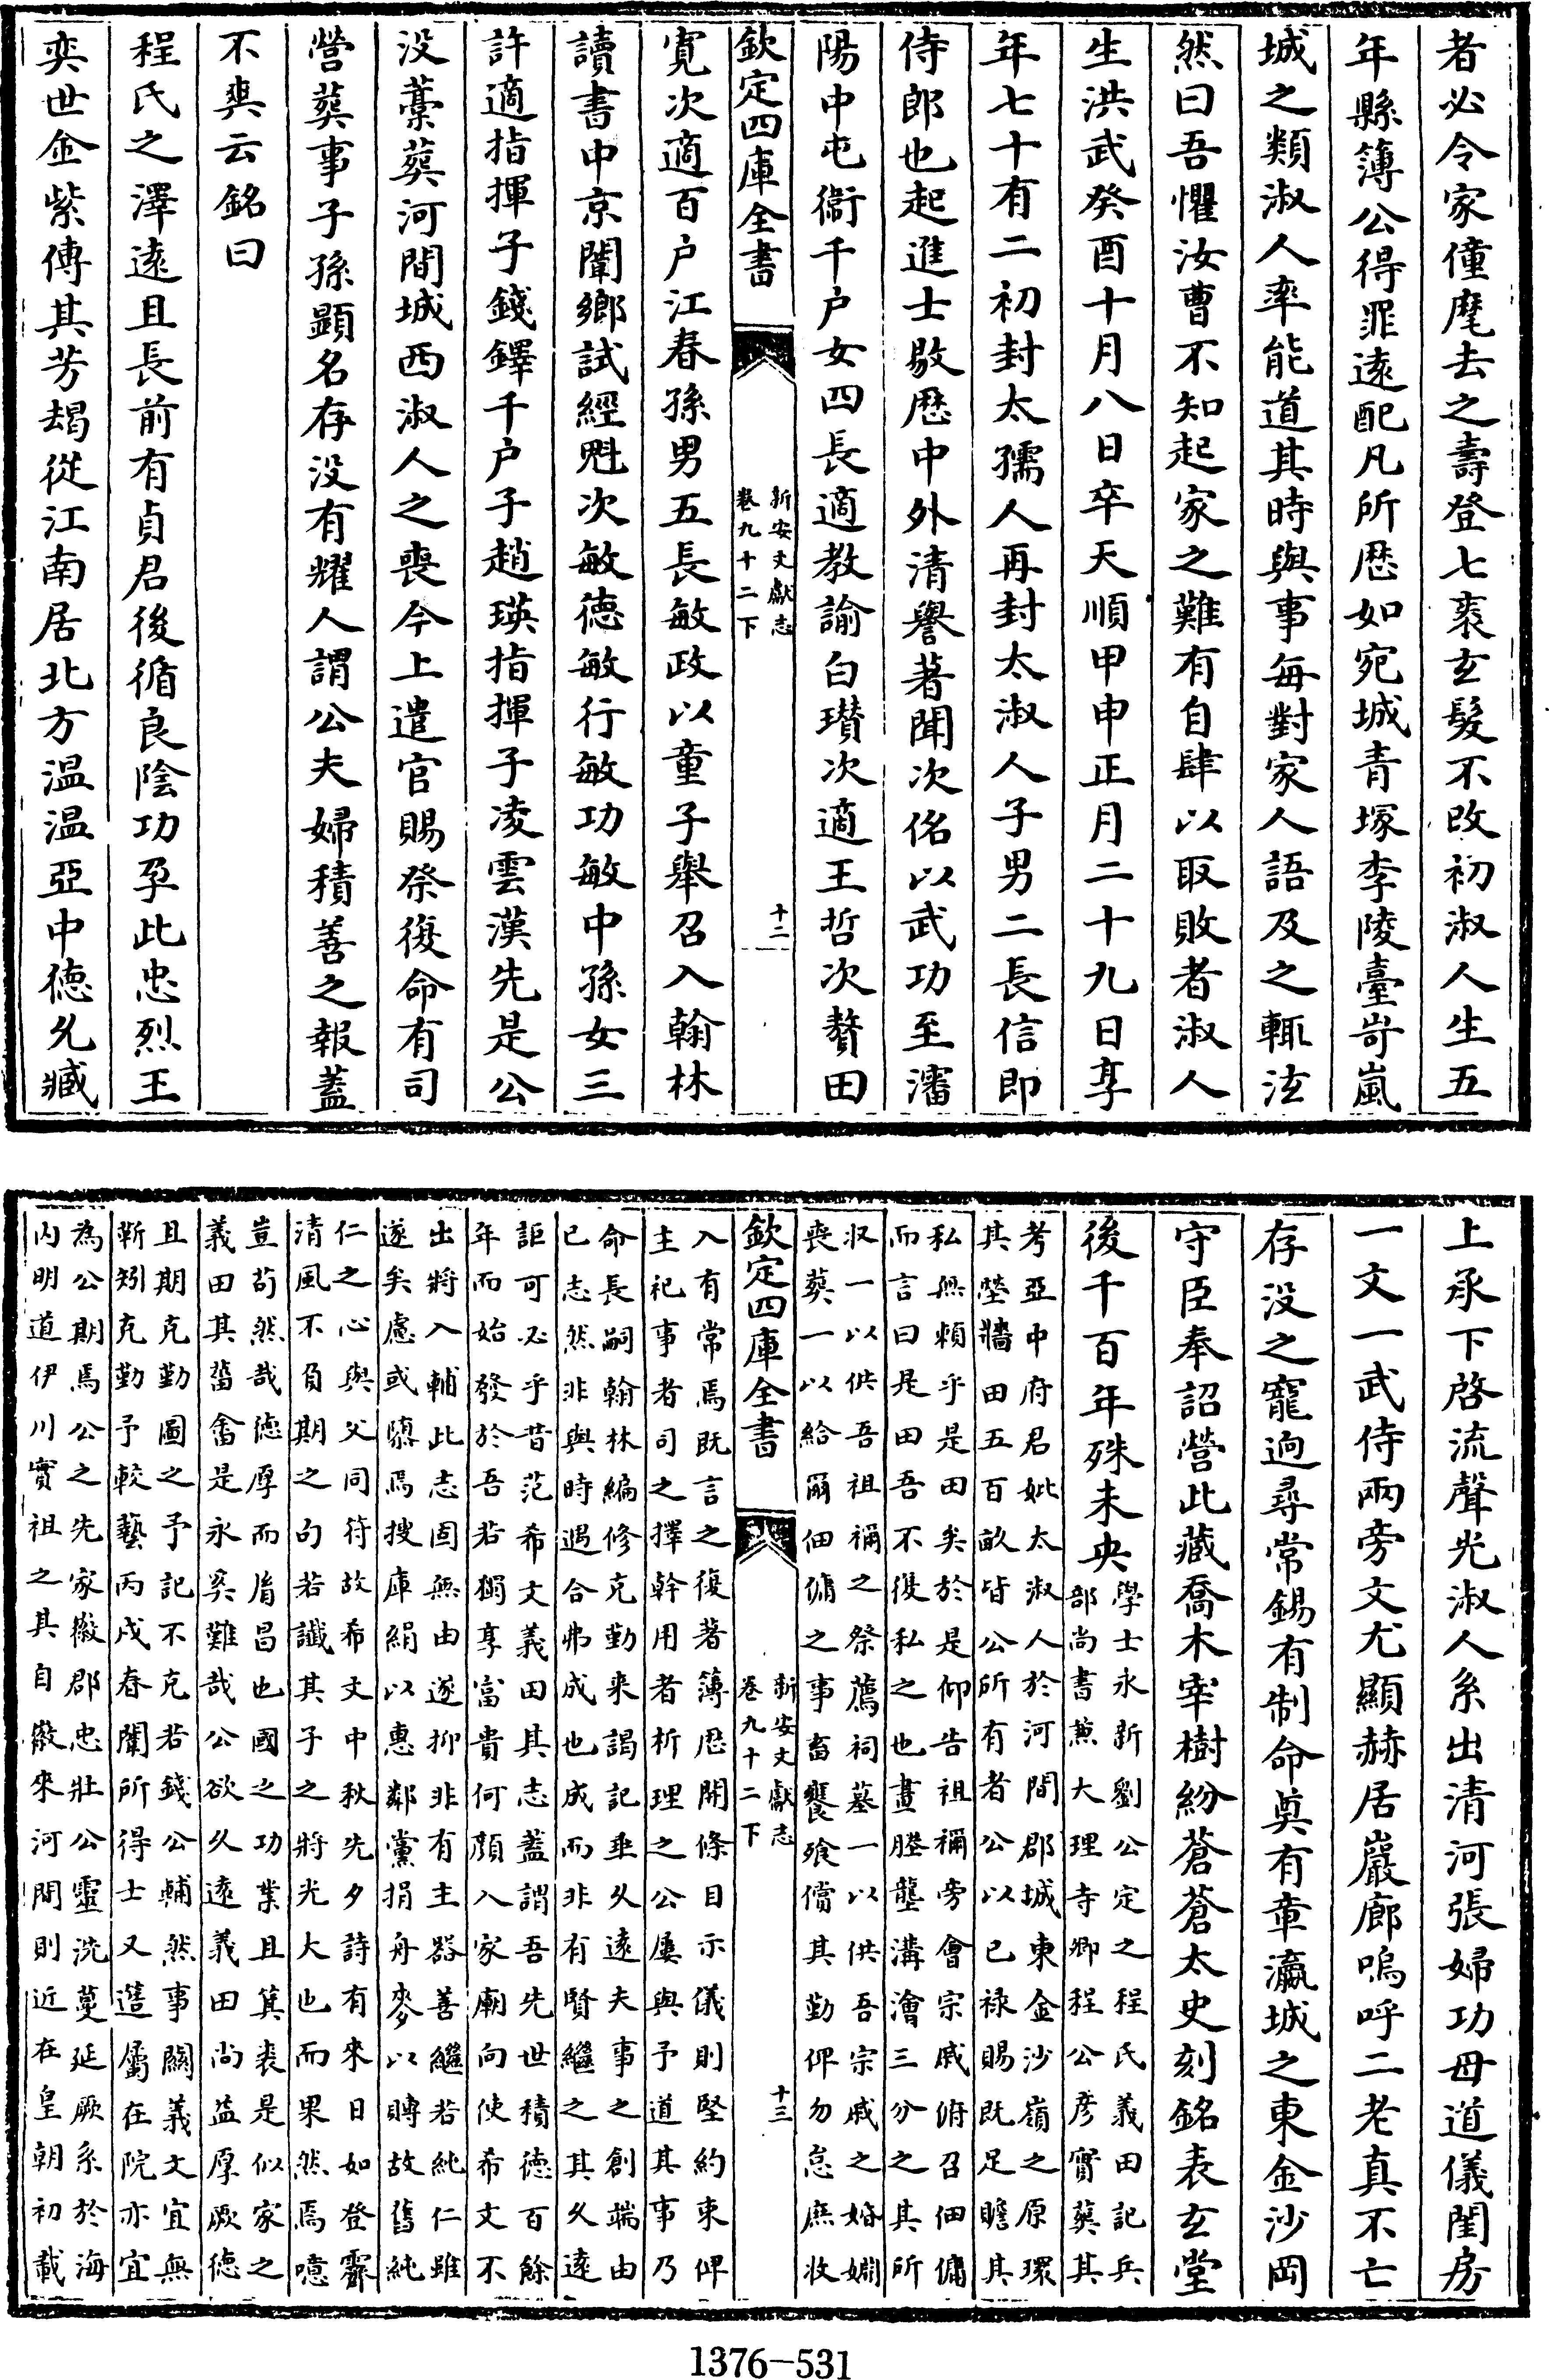 者必令家僮麾去之壽登七袠玄髮不改初淑人生五
年縣簿公得罪逺配凡所歴如宛城青塚李陵臺岢嵐
城之類淑人率能道其時與事每對家人語及之輒泫
然曰吾懼汝曹不知起家之難有自肆以取敗者淑人
生洪武癸酉十月八日卒天順甲申正月二十九日享
年七十有二初封太孺人再封太淑人子男二長信即
侍郎也起進士敭歴中外清譽著聞次佲以武功至瀋
陽中屯衞千户女四長適教諭白瓚次適王哲次贅田
欽定四庫全書
新安文獻志
卷九十二下
十二
寛次適百户江春孫男五長敏政以童子舉召入翰林
讀書中京闈鄉試經魁次敏德敏行敏功敏中孫女三
許適指揮子錢鐸千户子趙瑛指揮子凌雲漢先是公
没藁葬河間城西淑人之喪今上遣官賜祭復命有司
營葬事子孫顯名存没有耀人謂公夫婦積善之報蓋
不爽云銘曰
程氏之澤逺且長前有貞君後循良隂功孕此忠烈王
奕世金紫傳其芳朅從江南居北方温温亞中德允臧
上承下啓流聲光淑人系出清河張婦功母道儀閨房
一文一武侍兩旁文尤顯赫居巖廊嗚呼二老真不亡
存没之寵逈尋常錫有制命奠有章瀛城之東金沙岡
守臣奉詔營此藏喬木宰樹紛蒼蒼太史刻銘表玄堂
後千百年殊未央
學士永新劉公定之程氏義田記兵
部尚書兼大理寺卿程公彦實葬其
考亞中府君妣太淑人於河間郡城東金沙嶺之原環
其塋牆田五百畝皆公所有者公以已禄賜既足贍其
私無頼乎是田矣於是仰告祖禰旁會宗戚俯召佃傭
而言曰是田吾不復私之也畫塍壟溝澮三分之其所
収一以供吾祖禰之祭薦祠墓一以供吾宗戚之婚婣
喪葬一以給爾佃傭之事畜饔飱償其勤俾勿怠庶收
欽定四庫全書
新安文獻志
卷九十二下
十三
入有常焉既言之復著簿歴開條目示儀則堅約束俾
主祀事者司之擇幹用者析理之公屢與予道其事乃
命長嗣翰林編修克勤来謁記垂久逺夫事之創端由
已志然非與時遇合弗成也成而非有賢繼之其久逺
詎可必乎昔范希文義田其志蓋謂吾先世積德百餘
年而始發於吾若獨享富貴何顔入家廟向使希文不
出將入輔此志固無由遂抑非有主器善繼若純仁雖
遂矣慮或隳焉搜庫絹以惠鄰黨捐舟麥以賻故舊純
仁之心與父同符故希文中秋先夕詩有來日如登霽
清風不負期之句若讖其子之將光大也而果然焉噫
豈茍然哉德厚而㣧昌也國之功業且箕裘是似家之
義田其菑畬是永奚難哉公欲久逺義田尚益厚厥德
且期克勤圖之予記不克若錢公輔然事關義文宜無
靳矧克勤予較藝丙戌春闈所得士又蓫屬在院亦宜
為公期焉公之先家徽郡忠壯公靈洗蔓延厥系於海
内明道伊川實祖之其自徽來河間則近在皇朝初載
1376-531